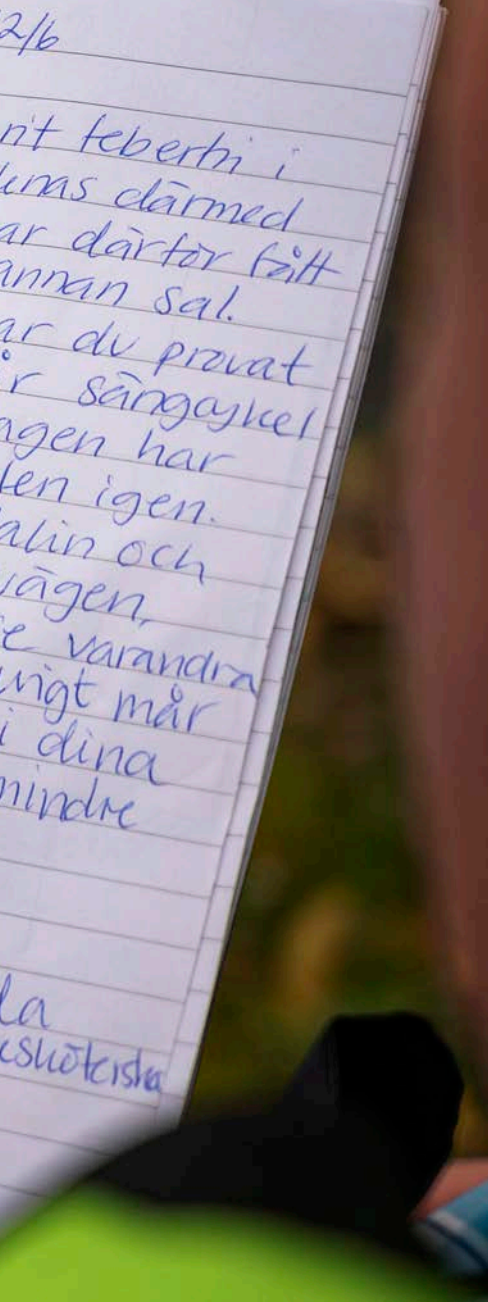 2/6
rit feberfri i
därmed
ar därför fått
annan sal.
ar du provat
r sängcykel
agen har
len igen.
alin och
vägen,
e varandra
vrigt mår
i dina
mindre
la
sköterska